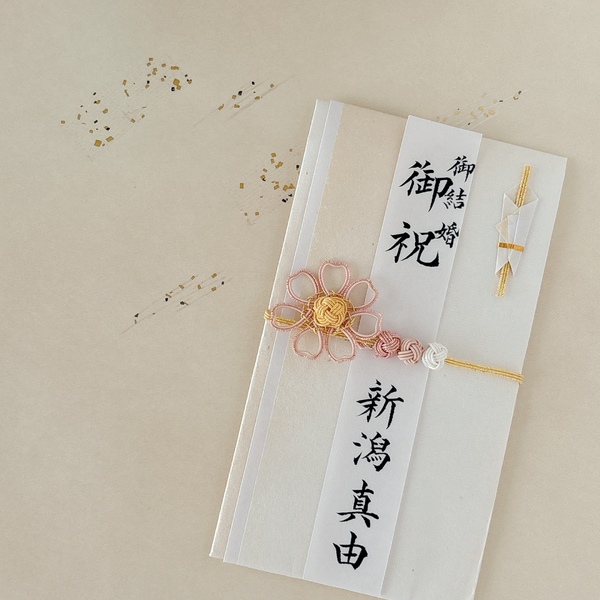 御結婚
御祝
新潟真由